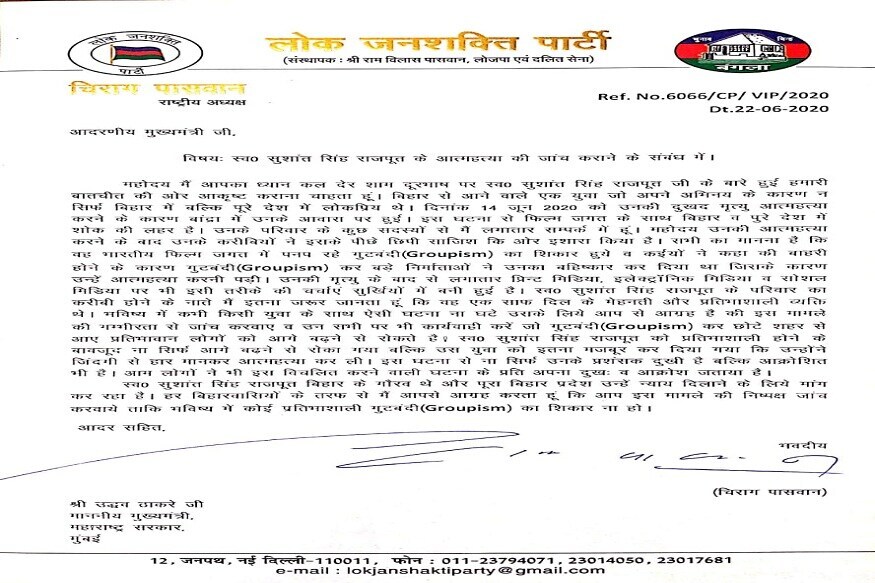 लोक जनशक्ति
पार्टी
लोक जनशक्ति पार्टी
(संस्थापक : श्री राम विलास पासवान, लोजपा एवं दलित सेना)
चुनाव चिन्ह
बंगला
चिराग पासवान
राष्ट्रीय अध्यक्ष
Ref. No.6066/CP/ VIP/2020
Dt.22-06-2020
आदरणीय मुख्यमंत्री जी,
विषयः स्व0 सुशांत सिंह राजपूत के आत्महत्या की जांच कराने के संबंध में।
महोदय मैं आपका ध्यान कल देर शाम दूरभाष पर स्व0 सुशांत सिंह राजपूत जी के बारे हुई हमारी
बातचीत की ओर आकृष्ट कराना चाहता हूं। बिहार से आने वाले एक युवा जो अपने अभिनय के कारण न
सिर्फ बिहार में बल्कि पूरे देश में लोकप्रिय थे। दिनांक 14 जून 2020 को उनकी दुखद मृत्यु आत्महत्या
करने के कारण बांद्रा में उनके आवास पर हुई। इस घटना से फिल्म जगत के साथ बिहार व पुरे देश में
शोक की लहर है। उनके परिवार के कुछ सदस्यों से मैं लगातार सम्पर्क में हूं। महोदय उनकी आत्महत्या
करने के बाद उनके करीबियों ने इसके पीछे छिपी साजिश कि ओर इशारा किया है। सभी का मानना है कि
वह भारतीय फिल्म जगत में पनप रहे गुटबंदी(Groupism) का शिकार हुये व कईयों ने कहा की बाहरी
होने के कारण गुटबंदी(Groupism) कर बड़े निर्माताओं ने उनका बहिष्कार कर दिया था जिसके कारण
उन्हें आत्महत्या करनी पड़ी। उनकी मृत्यु के बाद से लगातार प्रिन्ट मिडिया, इलेक्ट्रॉनिक मिडिया व सोशल
मिडिया पर भी इसी तरीके की चर्चाएं सुर्खियों में बनी हुई है। स्व0 सुशांत सिंह राजपूत के परिवार का
करीबी होने के नाते मैं इतना जरूर जानता हूं कि वह एक साफ दिल के मेहनती और प्रतिभाशाली व्यक्ति
थे। भविष्य में कभी किसी युवा के साथ ऐसी घटना ना घटे उसके लिये आप से आग्रह है की इस मामले
की गम्भीरता से जांच करवाए व उन सभी पर भी कार्यवाही करें जो गुटबंदी(Groupism) कर छोटे शहर से
आए प्रतिभावान लोगों को आगे बढ़ने से रोकते है। स्व0 सुशांत सिंह राजपूत को प्रतिभाशाली होने के
बावजूद ना सिर्फ आगे बढने से रोका गया बल्कि उस युवा को इतना मजबूर कर दिया गया कि उन्होंने
जिंदगी से हार मानकर आत्महत्या कर ली। इस घटना से ना सिर्फ उनके प्रशंसक दुःखी है बल्कि आक्रोशित
भी है। आम लोगों ने भी इस विचलित करने वाली घटना के प्रति अपना दुखः व आक्रोश जताया है।
स्व0 सुशांत सिंह राजपूत बिहार के गौरव थे और पूरा बिहार प्रदेश उन्हें न्याय दिलाने के लिये मांग
कर रहा है। हर बिहारवासियों के तरफ से मैं आपसे आग्रह करता हूं कि आप इस मामले की निष्पक्ष जांच
करवाये ताकि भविष्य में कोई प्रतिभाशाली गुटबंदी(Groupism) का शिकार ना हो।
आदर सहित,
भवदीय
(चिराग पासवान)
श्री उद्धव ठाकरे जी
माननीय मुख्यमंत्री,
महाराष्ट्र सरकार,
मुंबई
12, जनपथ, नई दिल्ली-110011, फोन : 011-23794071, 23014050, 23017681
e-mail : lokjanshaktiparty@gmail.com